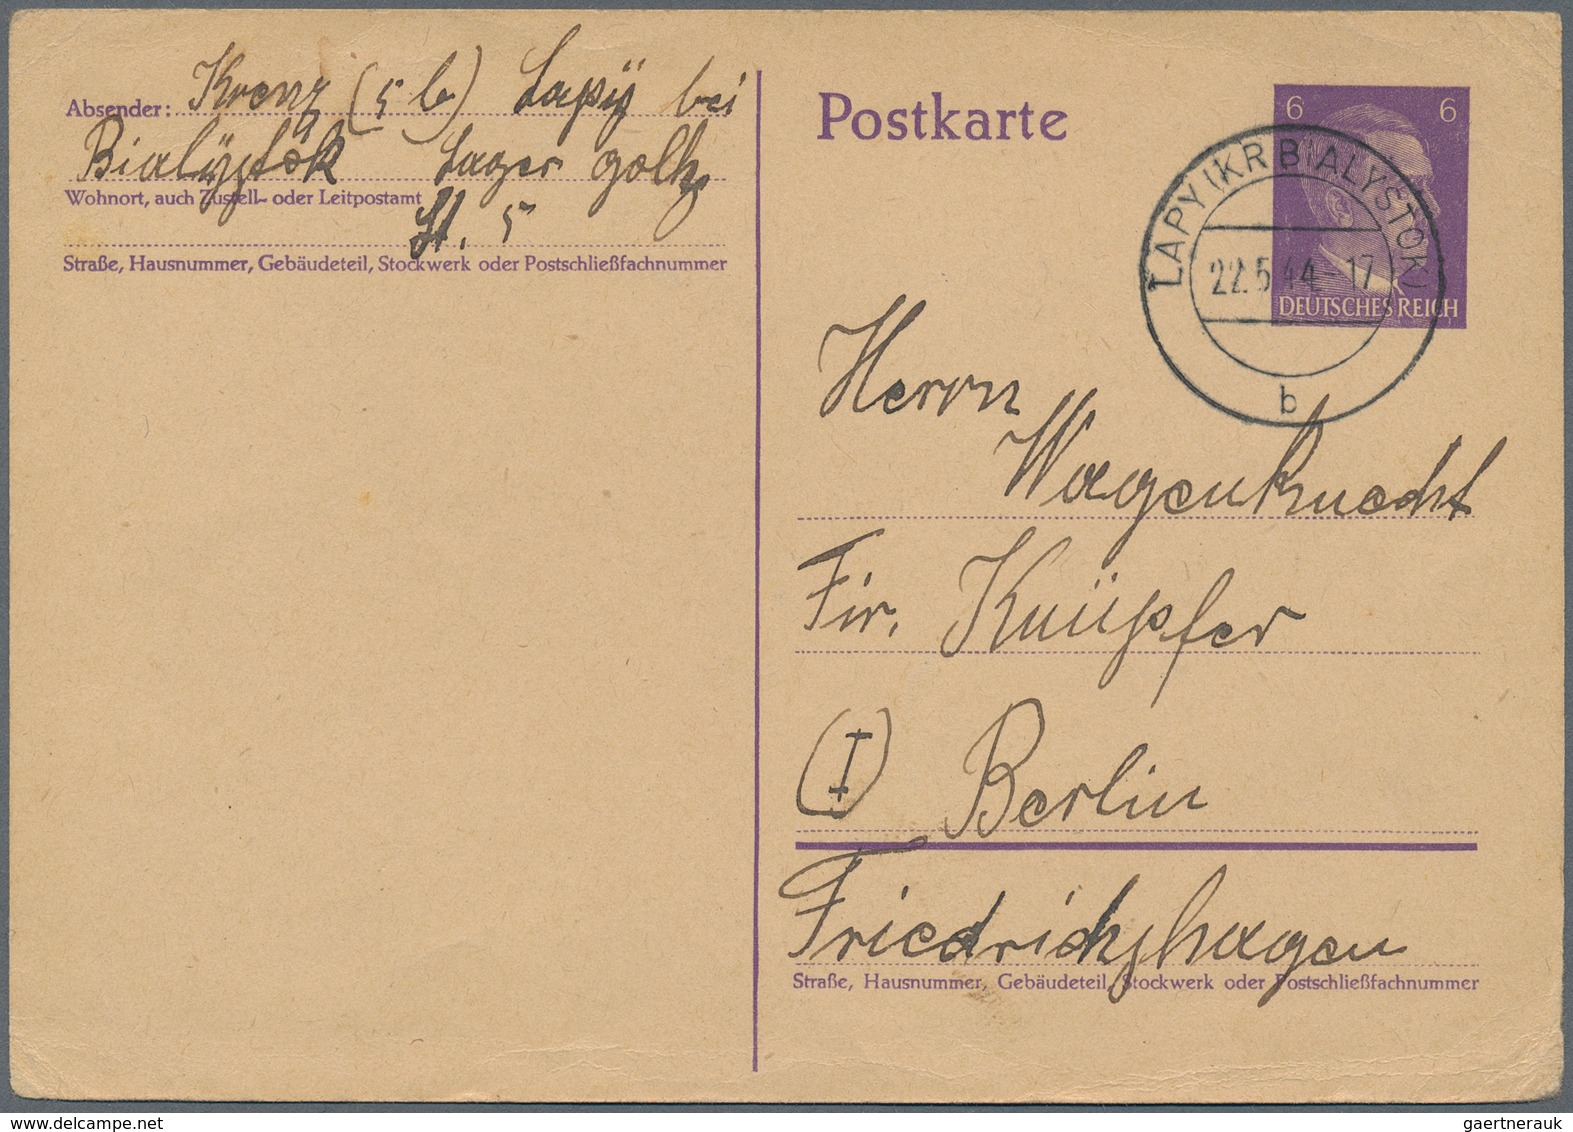 Absender: Krenz (5 b) Lapÿ bei
Bialÿstok Lager
Wohnort, auch Zustell- oder Leitpostamt
St. 5
Straße, Hausnummer, Gebäudeteil, Stockwerk oder Postschließfachnummer
Postkarte
6 6
DEUTSCHES REICH
LAPY (KR BIALYSTOK)
22.5.44-17
b
Herrn
Wagenknecht
Fir. Knüpfer
(I) Berlin
Friedrichshagen
Straße, Hausnummer, Gebäudeteil, Stockwerk oder Postschließfachnummer
gaertnerauk